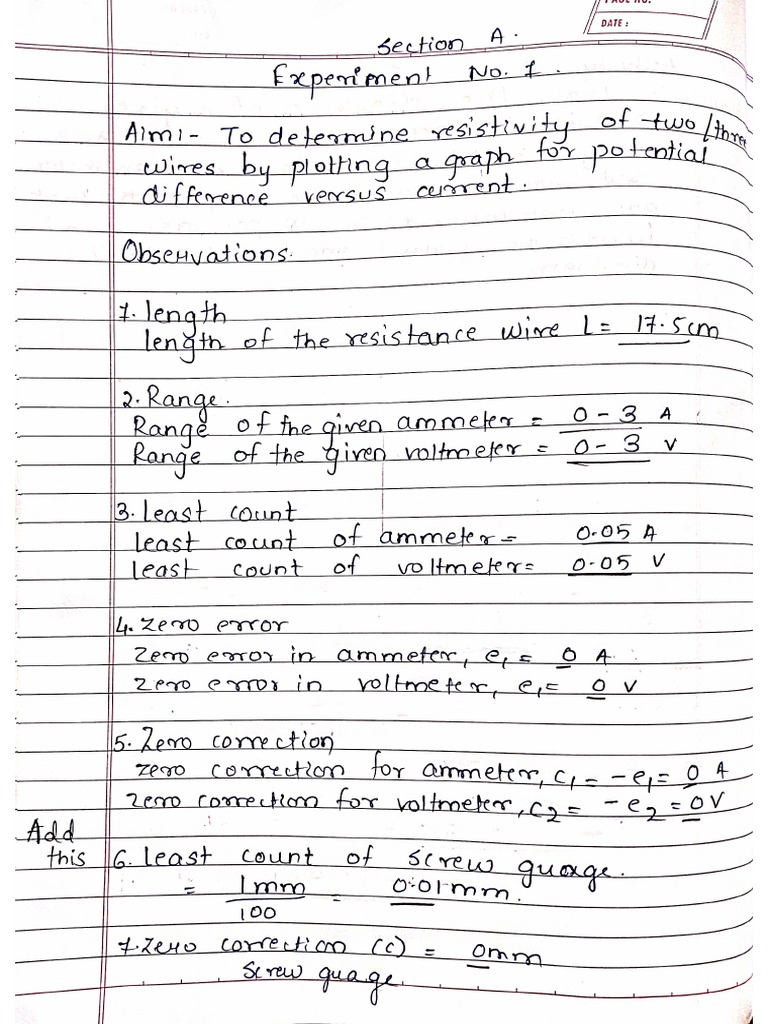 PAGE NO.
DATE :
Section A.
Experiment No. 1.
Aim:- To determine resistivity of two/three
wires by plotting a graph for potential
difference versus current.
Observations.
1. length
length of the resistance wire L = 17.5cm
2. Range.
Range of the given ammeter = 0 - 3 A
Range of the given voltmeter = 0 - 3 V
3. Least count
least count of ammeter = 0.05 A
least count of voltmeter = 0.05 V
4. Zero error
Zero error in ammeter, e₁ = 0 A
Zero error in voltmeter, e₁ = 0 V
5. Zero correction
Zero correction for ammeter, C₁ = -e₁ = 0 A
Zero correction for voltmeter, C2 = -e2 = 0V
Add
this
6. Least count of screw guage.
= 1mm/100 = 0.01mm.
7. Zero correction (c) = 0mm
Screw guage